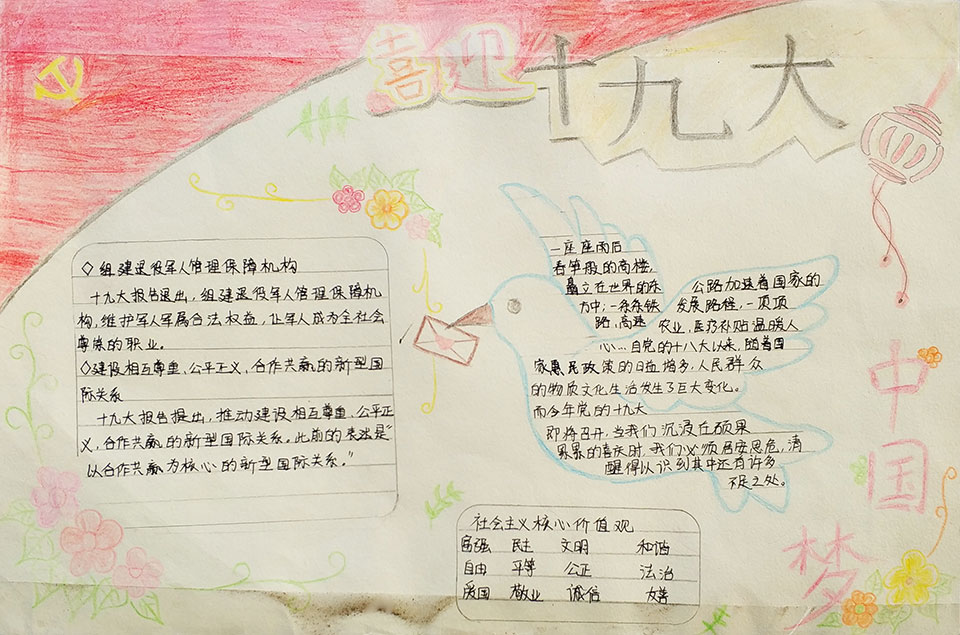 喜迎十九大
◇组建退役军人管理保障机构
十九大报告提出,组建退役军人管理保障机
构,维护军人军属合法权益,让军人成为全社会
尊崇的职业。
◇建设相互尊重、公平正义、合作共赢的新型国
际关系
十九大报告提出,推动建设相互尊重、公平正
义、合作共赢的新型国际关系。此前的表述是“
以合作共赢为核心的新型国际关系。”
一座座雨后
春笋般的高楼,
矗立在世界的东
方中;一条条铁
路,高速
公路加速着国家的
发展路程,一项项
农业,医疗补贴温暖人
心…自党的十八大以来,随着国
家惠民政策的日益增多,人民群众
的物质文化生活发生了巨大变化。
而今年党的十九大
即将召开,当我们沉浸在硕果
累累的喜庆时,我们必须居安思危,清
醒得认识到其中还有许多
不足之处。
社会主义核心价值观
富强 民主 文明 和谐
自由 平等 公正 法治
爱国 敬业 诚信 友善
中国梦